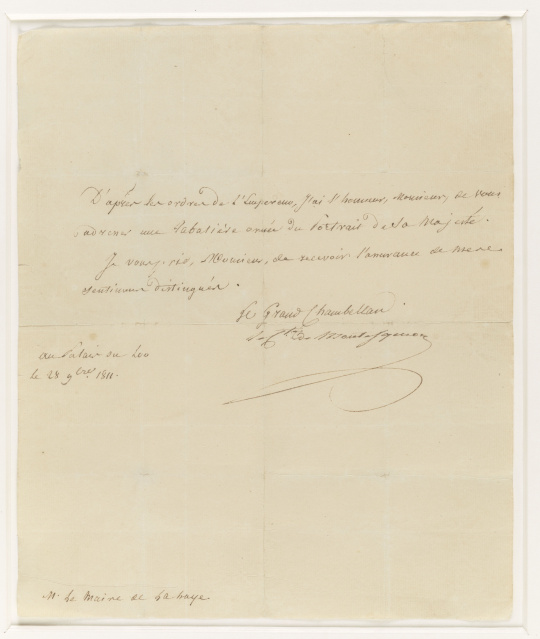 D'après les ordres de l'Empereur, J'ai l'honneur, Monsieur, de vous
adresser une tabatière ornée du Portrait de Sa Majesté.
Je vous prie, Monsieur, de recevoir l'assurance de mes
sentimens distingués.
Le Grand Chambellan
le Cte de Montesquiou
au Palais du Loo
le 28 9bre 1811.
Mr Le Maire de La haye.